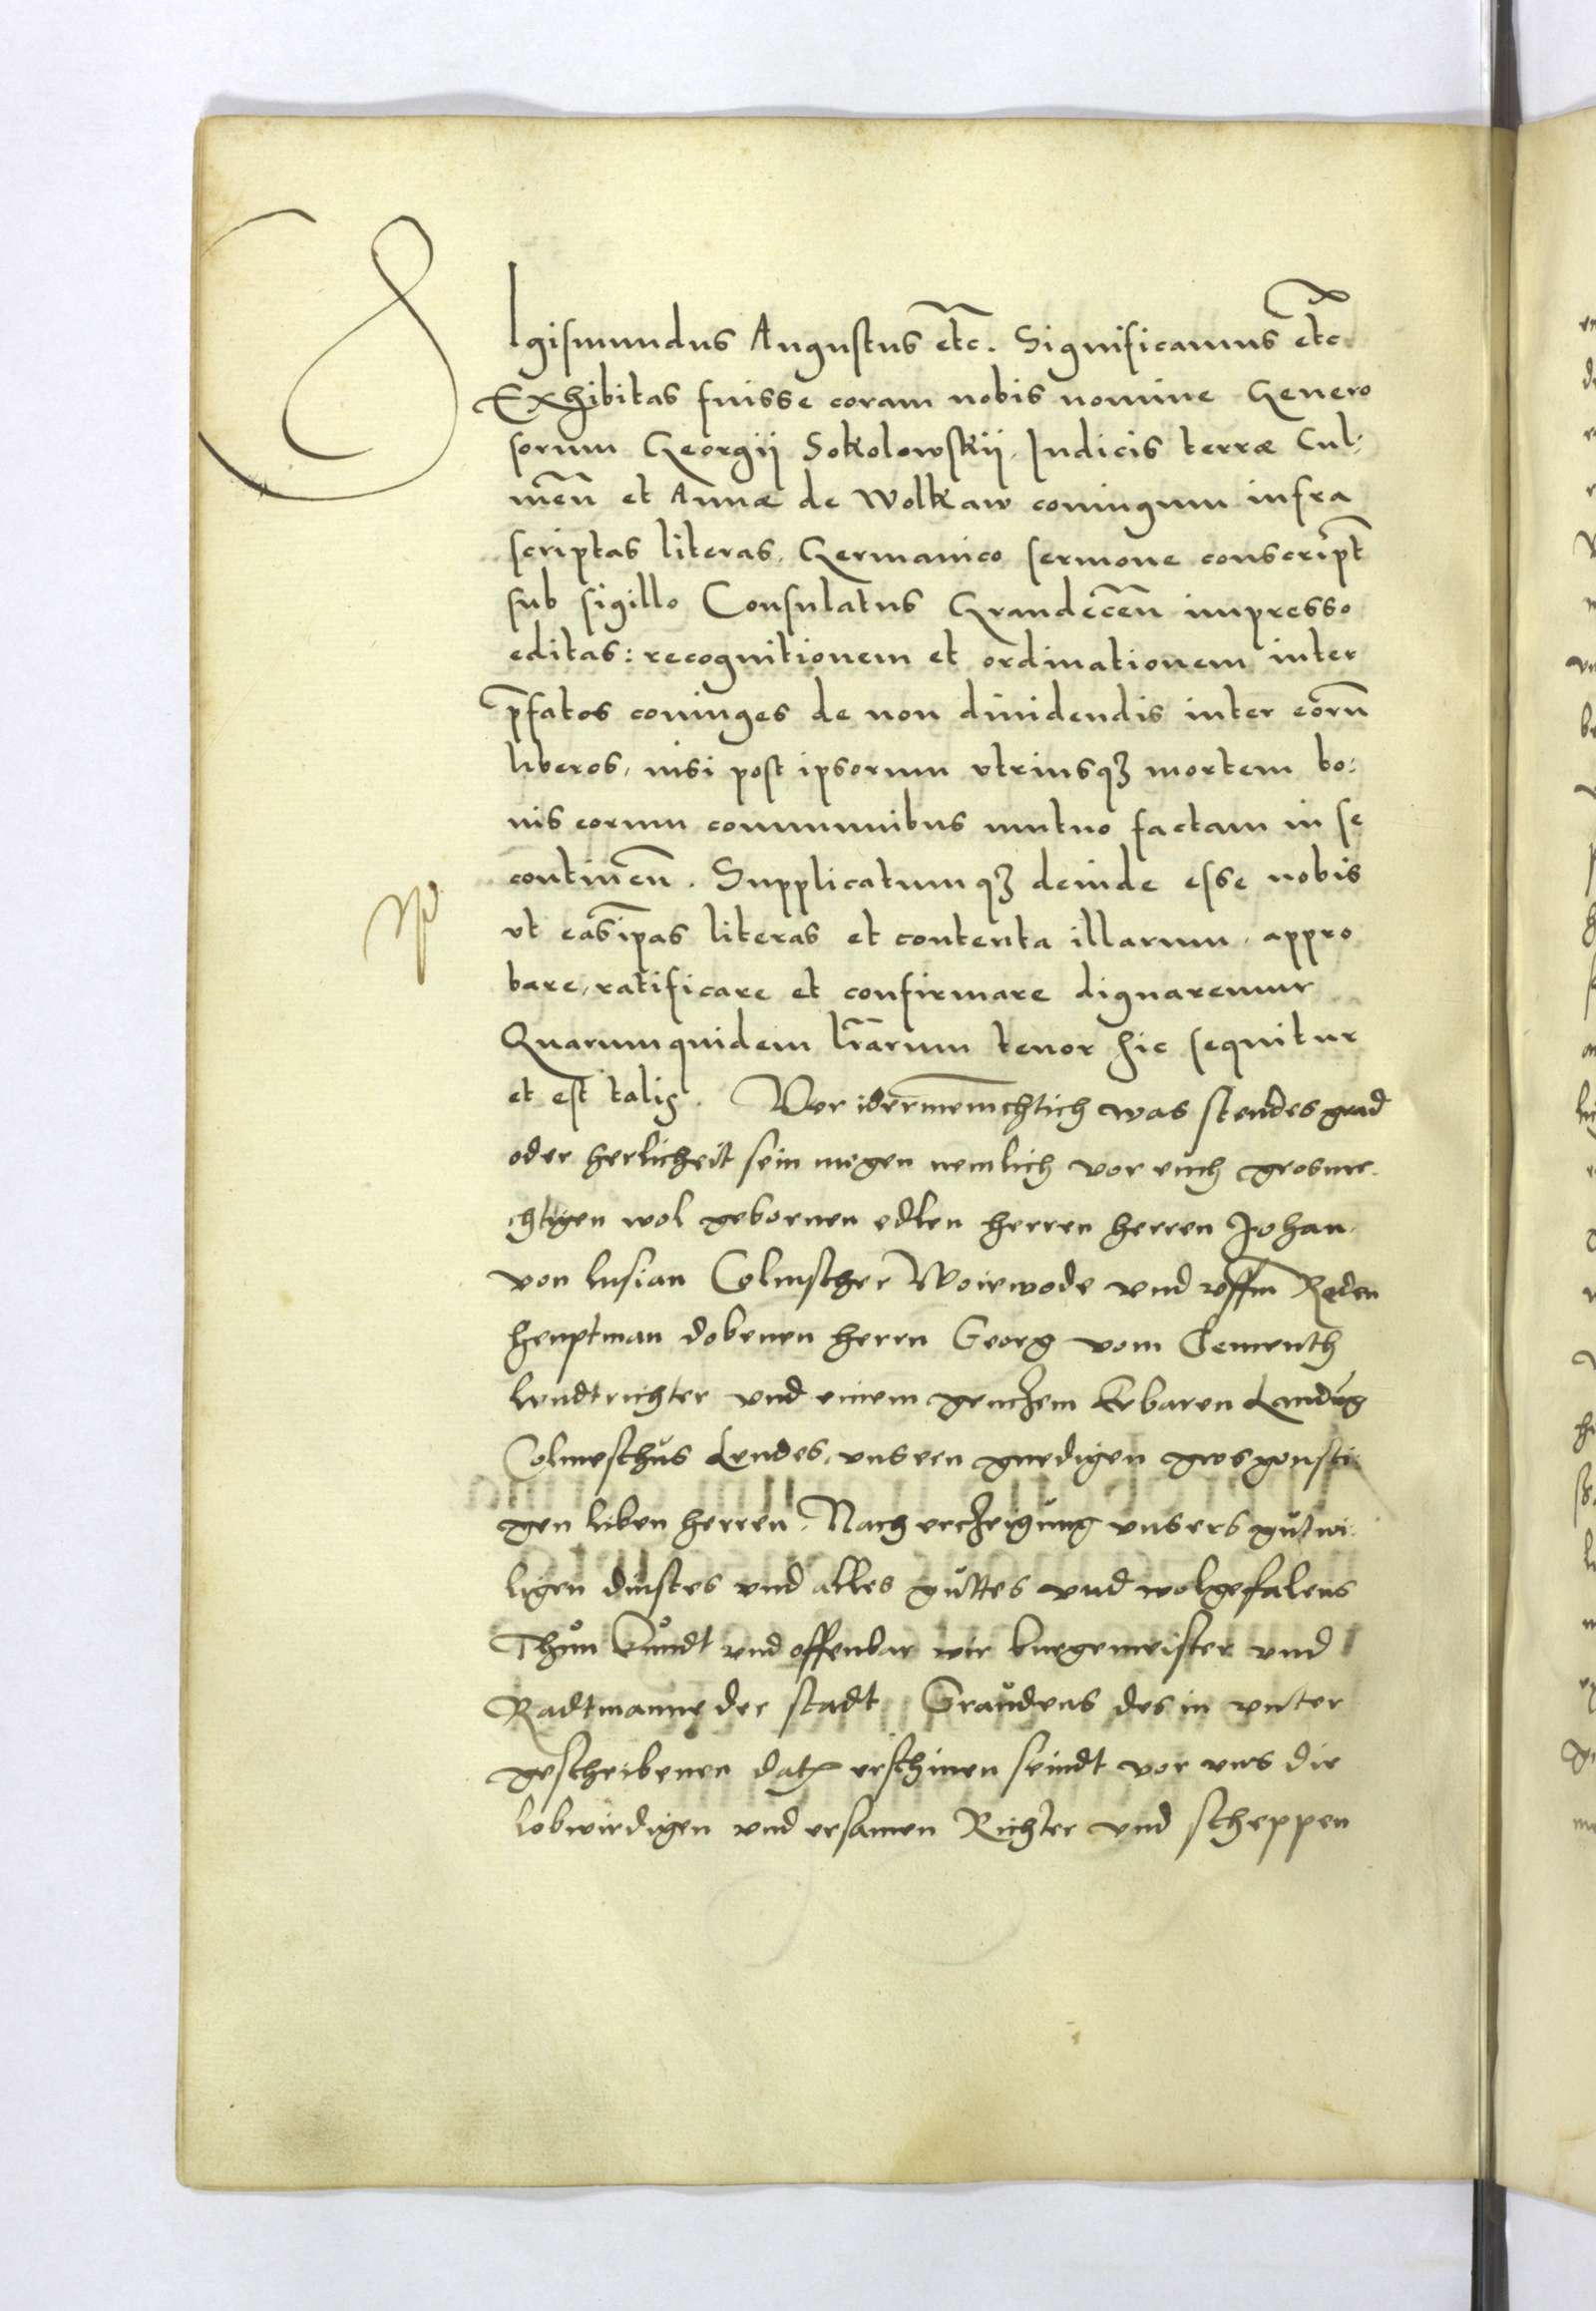 SIgismundus Augustus etc. Significamus etc.
Exhibitas fuisse coram nobis nomine Genero
sorum Georgij Sokolowskij Iudicis terræ Cul:
men̄ et Annæ de Wolkaw coniugum infra
scriptas literas, Germanico sermone conscript
sub sigillo Consulatus Grandecen̄ impresso
editas: recognitionem et ordinationem inter
p̄fatos coniuges de non diuidendis inter eorū
liberos, nisi post ipsorum vtriusqꝫ mortem bo:
nis eorum communibus mutuo factam in se
continen̄. Supplicatumqꝫ deinde esse nobis
vt easip̄as literas et contenta illarum, appro
bare, ratificare et confirmare dignaremur
Quarumquidem lr̄arum tenor hic sequitur
et est talis. Vor idermenichlich was standes grad
oder herlicheit sein mogen nemlich vor euch grosme
chtigen wol gebornen edlen herren herren Johan
von lusian Colmscher Woiewode vnd vffm Reden
heuptman dobenen herrn Georg vom Cementh
lendtrichter vnd einem ganczem Erbaren Landtg
Colmeschus Landes, vnseren gnedigen gros gonsti
gen liben herren. Nach erczeigung vnsers gutwi
ligen dinstes vnd alles guttes vnd wolgefalens
Thun kundt vnd offenbar wir burgemeister vnd
Radtmanne der stadt Graudens das in vnter
geschribenen dato erschinen seindt vor vns die
lobwirdigen vnd ersamen Richter vnd scheppen